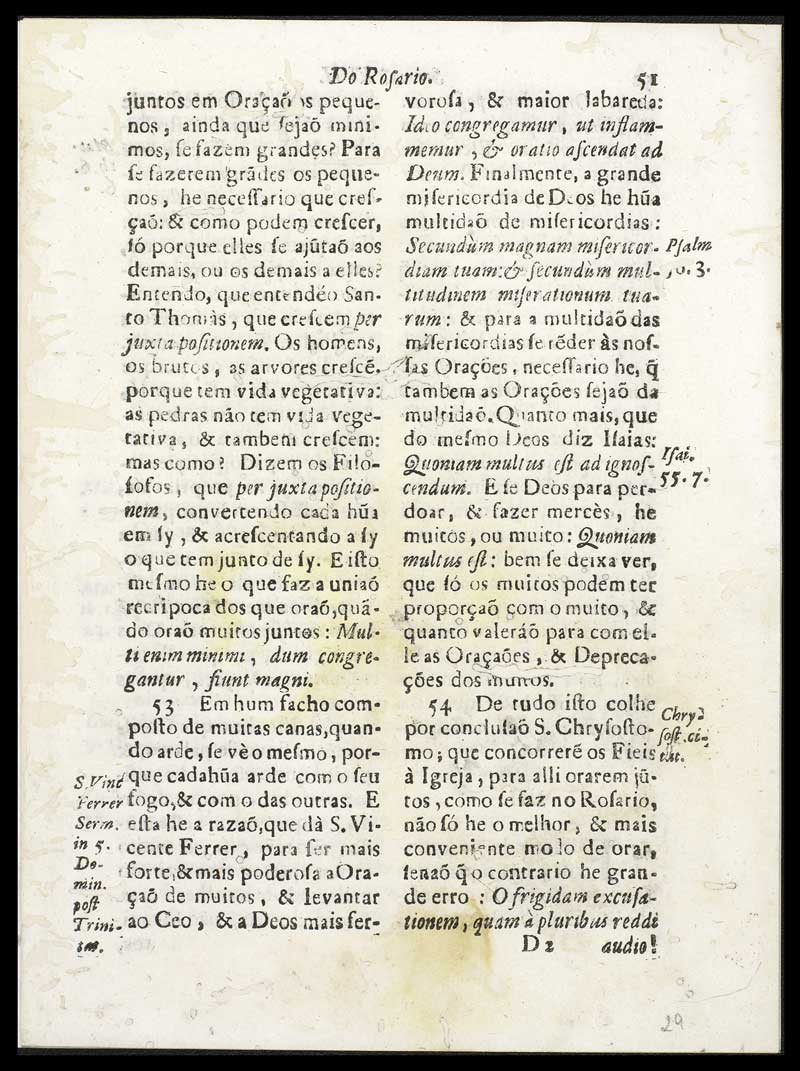 Do Roſario.
51
juntos em Oraçaõ os peque-
nos, ainda que ſejaõ mini-
mos, ſe fazem grandes? Para
ſe fazerem grãdes os peque-
nos, he neceſſario que creſ-
çaõ: & como podem creſcer,
ſó porque elles ſe ajũtaõ aos
demais, ou os demais a elles?
Entendo, que entendéo San-
to Thomàs, que creſcem per
juxta poſitionem. Os homens,
os brutos, as arvores creſcẽ.
porque tem vida vegetativa:
as pedras não tem vida vege-
tativa, & tambem creſcem:
mas como? Dizem os Filo-
ſofos, que per juxta poſitio-
nem, convertendo cada hũa
em ſy, & acreſcentando a ſy
o que tem junto de ſy. E iſto
meſmo he o que faz a uniaõ
recripoca dos que oraõ, quã-
do oraõ muitos juntos: Mul-
ti enim minimi, dum congre-
gantur, fiunt magni.
53 Em hum facho com-
poſto de muitas canas, quan-
do arde, ſe vè o meſmo, por-
que cada hũa arde com o ſeu
fogo, & com o das outras. E
eſta he a razaõ, que dà S. Vi-
cente Ferrer, para ſer mais
forte, & mais poderoſa a Ora-
çaõ de muitos, & levantar
ao Ceo, & a Deos mais fer-
S. Vinc
Ferrer
Serm.
in 5.
Do-
min.
poſt
Trini-
tat.
voroſa, & maior labareda:
Ideo congregamur, ut inflam-
memur, & oratio aſcendat ad
Deum. Finalmente, a grande
miſericordia de Deos he hũa
multidaõ de miſericordias:
Secundùm magnam miſericor-
diam tuam: & ſecundùm mul-
titudinem miſerationum tua-
rum: & para a multidaõ das
miſericordias ſe rẽder às noſ-
ſas Orações, neceſſario he, q̃
tambem as Orações ſejaõ da
multidaõ. Quanto mais, que
do meſmo Deos diz Iſaias:
Quoniam multus eſt ad ignoſ-
cendum. E ſe Deos para per-
doar, & fazer mercès, he
muitos, ou muito: Quoniam
multus eſt: bem ſe deixa ver,
que ſó os muitos podem ter
proporçaõ com o muito, &
quanto valeráõ para com el-
le as Oraçaões, & Depreca-
ções dos muitos.
54 De tudo iſto colhe
por concluſaõ S. Chryſoſto-
mo; que concorrerẽ os Fieis
à Igreja, para alli orarem jũ-
tos, como ſe faz no Roſario,
não ſó he o melhor, & mais
conveniente modo de orar,
ſenaõ q̃ o contrario he gran-
de erro: O frigidam excuſa-
tionem, quam à pluribus reddi
D 2 audio!
Pſalm
50. 3.
Iſai.
55. 7.
Chry-
ſoſt. ci-
tat.
29